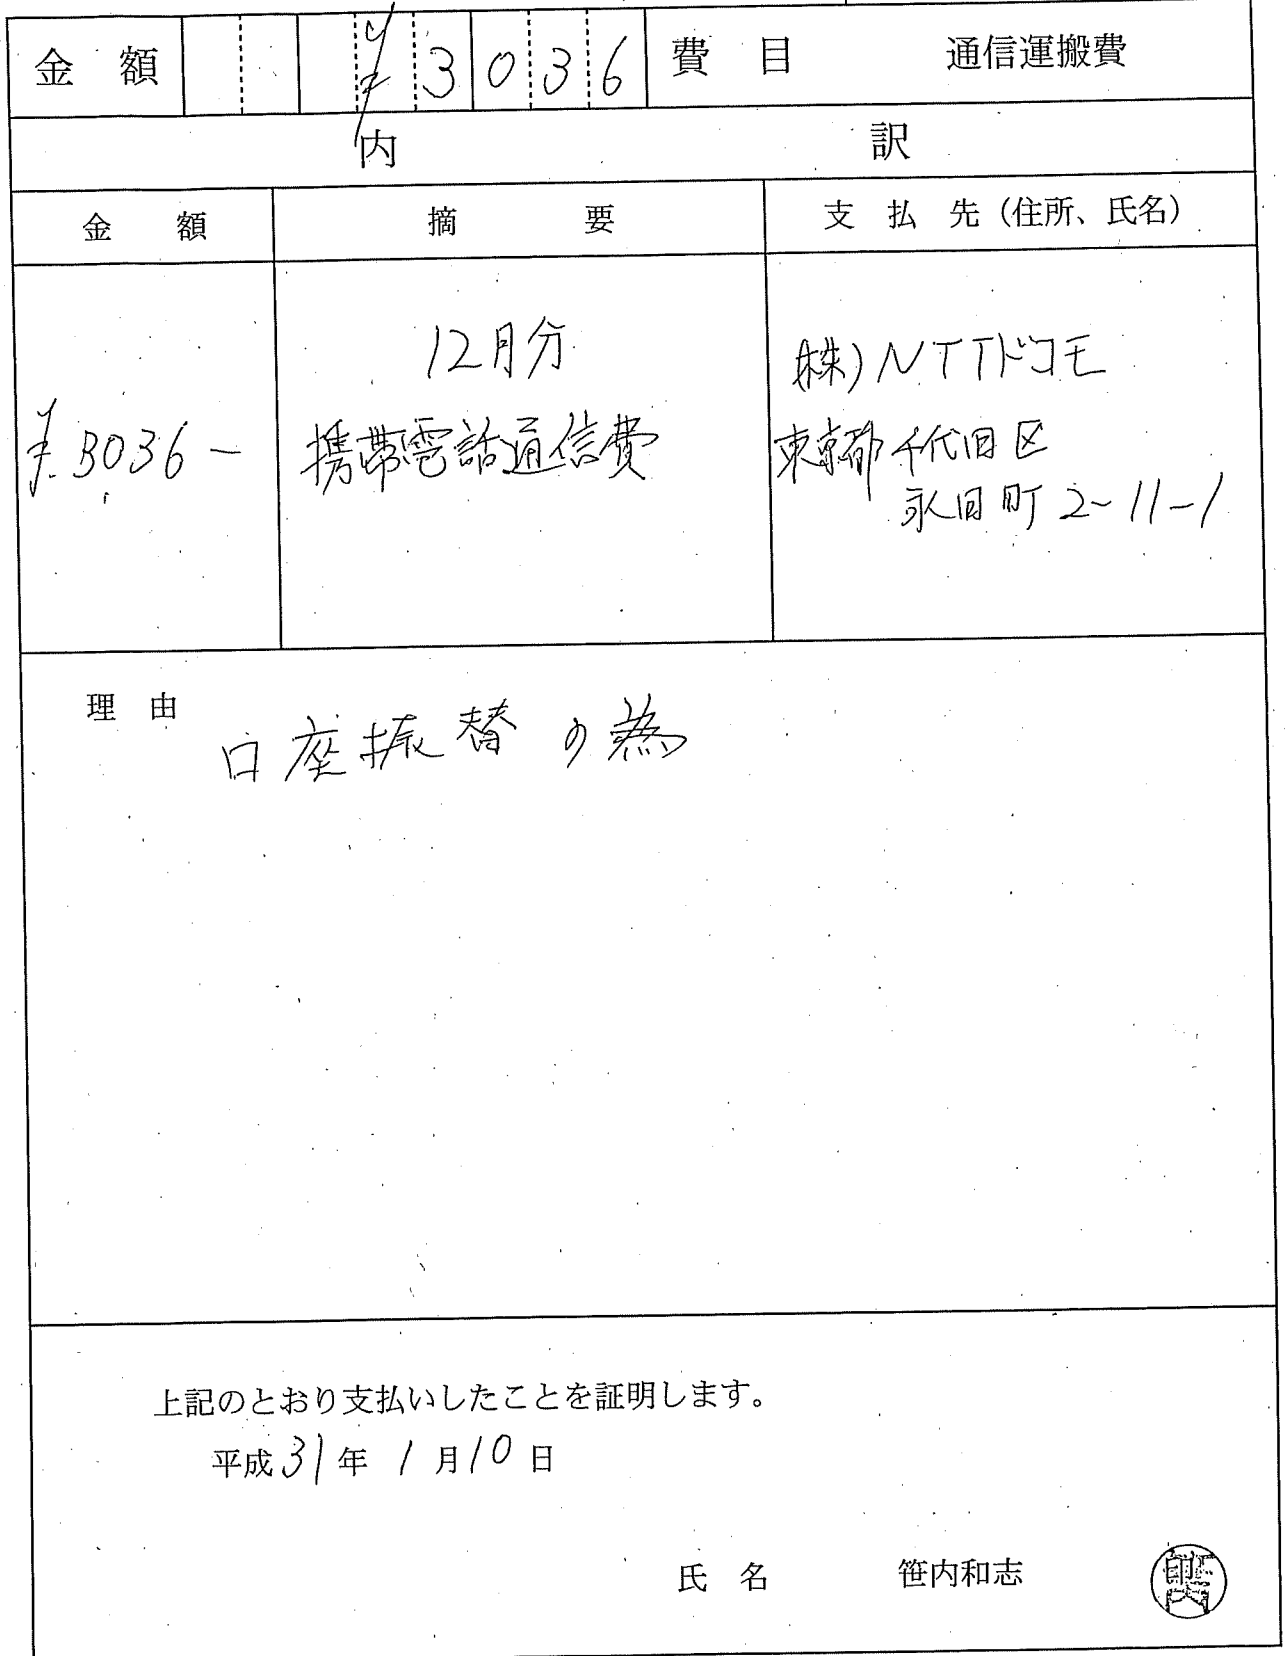 金額 ¥3036 費目 通信運搬費
内訳
金額 摘要 支払先（住所、氏名）
12月分
携帯電話通信費
¥3036－
(株)NTTドコモ
東京都千代田区
永田町2-11-1
理由
口座振替の為
上記のとおり支払いしたことを証明します。
平成31年1月10日
氏名 笹内和志